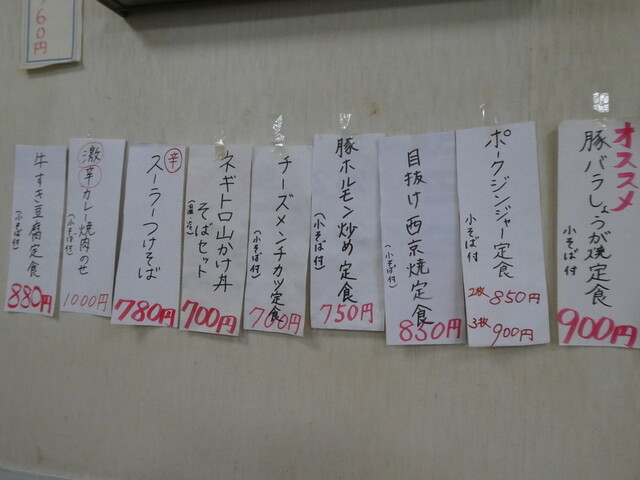 オススメ
豚バラしょうが焼定食
小そば付
900円
ポークジンジャー定食
小そば付
2枚 850円
3枚 900円
目抜け西京焼定食
(小そば付)
850円
豚ホルモン炒め定食
(小そば付)
750円
チーズメンチカツ定食
(小そば付)
700円
ネギトロ山かけ丼
そばセット
700円
辛
スーラーつけそば
780円
激辛カレー焼肉のせ
(小そば付)
1000円
牛すき豆腐定食
(小そば付)
880円
760円